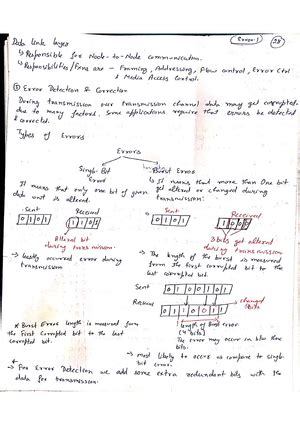 Error-1
28
Data Link Layer
↳ Responsible for Node-to-Node communication.
↳ Responsibilities/ are - Framing, Addressing, Flow control, Error Ctrl
& Media Access Control.
Error Detection & Correction
During transmission over transmission channel data may get corrupted
due to many factors. Some applications require that errors be detected
& corrected.
Types of Errors
Errors
Single-Bit
Error
Burst Errors
It means that only one bit of given
data unit is altered.
It is means that more than One bit
get altered or changed during
transmission.
Sent
Received
0 1 0 1
Altered bit
during transmission.
Sent
Received
0 1 0 1
3 bits get altered
during transmission
→ Leastly occurred error during
transmission
→ The length of the burst is measured
from the first corrupted bit to the
last corrupted bit.
Sent
Received
changed
bits
length of burst error
The error may occur in
bits.
* Burst Error length is measured from
the First Corrupted bit to the last
corrupted bit.
→ most likely to occur as compare to single-
bit error.
→ For Error Detection we add some extra redundant bits with the
data for transmission.